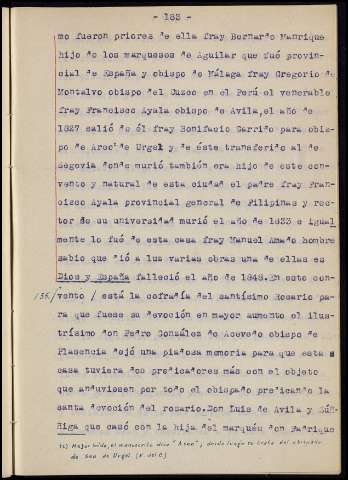 - 183 -
mo fueron priores de ella fray Bernardo Manrique
hijo de los marqueses de Aguilar que fué provin-
cial de España y obispo de Málaga fray Gregorio de
Montalvo obispo del Cuzco en el Perú el venerable
fray Francisco Ayala obispo de Avila,el año de
1827 salió de él fray Bonifacio Garrido para obis-
po de Arec de Urgel y de éste transferido al de
Segovia donde murió también era hijo de este con-
vento y natural de esta ciudad el padre fray Fran-
cisco Ayala provincial general de Filipinas y rec-
tor de su universidad murió el año de 1833 e igual
mente lo fué de esta casa fray Manuel Amado hombre
sabio que dió a luz varias obras una de ellas es
Dios y España falleció el año de 1848.En este con-
136/ vento / está la cofradía del santísimo Rosario pa-
ra que fuese su devoción en mayor aumento el ilus-
trísimo don Pedro González de Acevedo obispo de
Plasencia dejó una piadosa memoria para que esta
casa tuviera dos predicadores más con el objeto
que anduviesen por todo el obispado predicando la
santa devoción del rosario.Don Luis de Avila y Zúñ-
higa que casó con la hija del marqués don Fadrique
de Seo de Urgel (N. del C.)